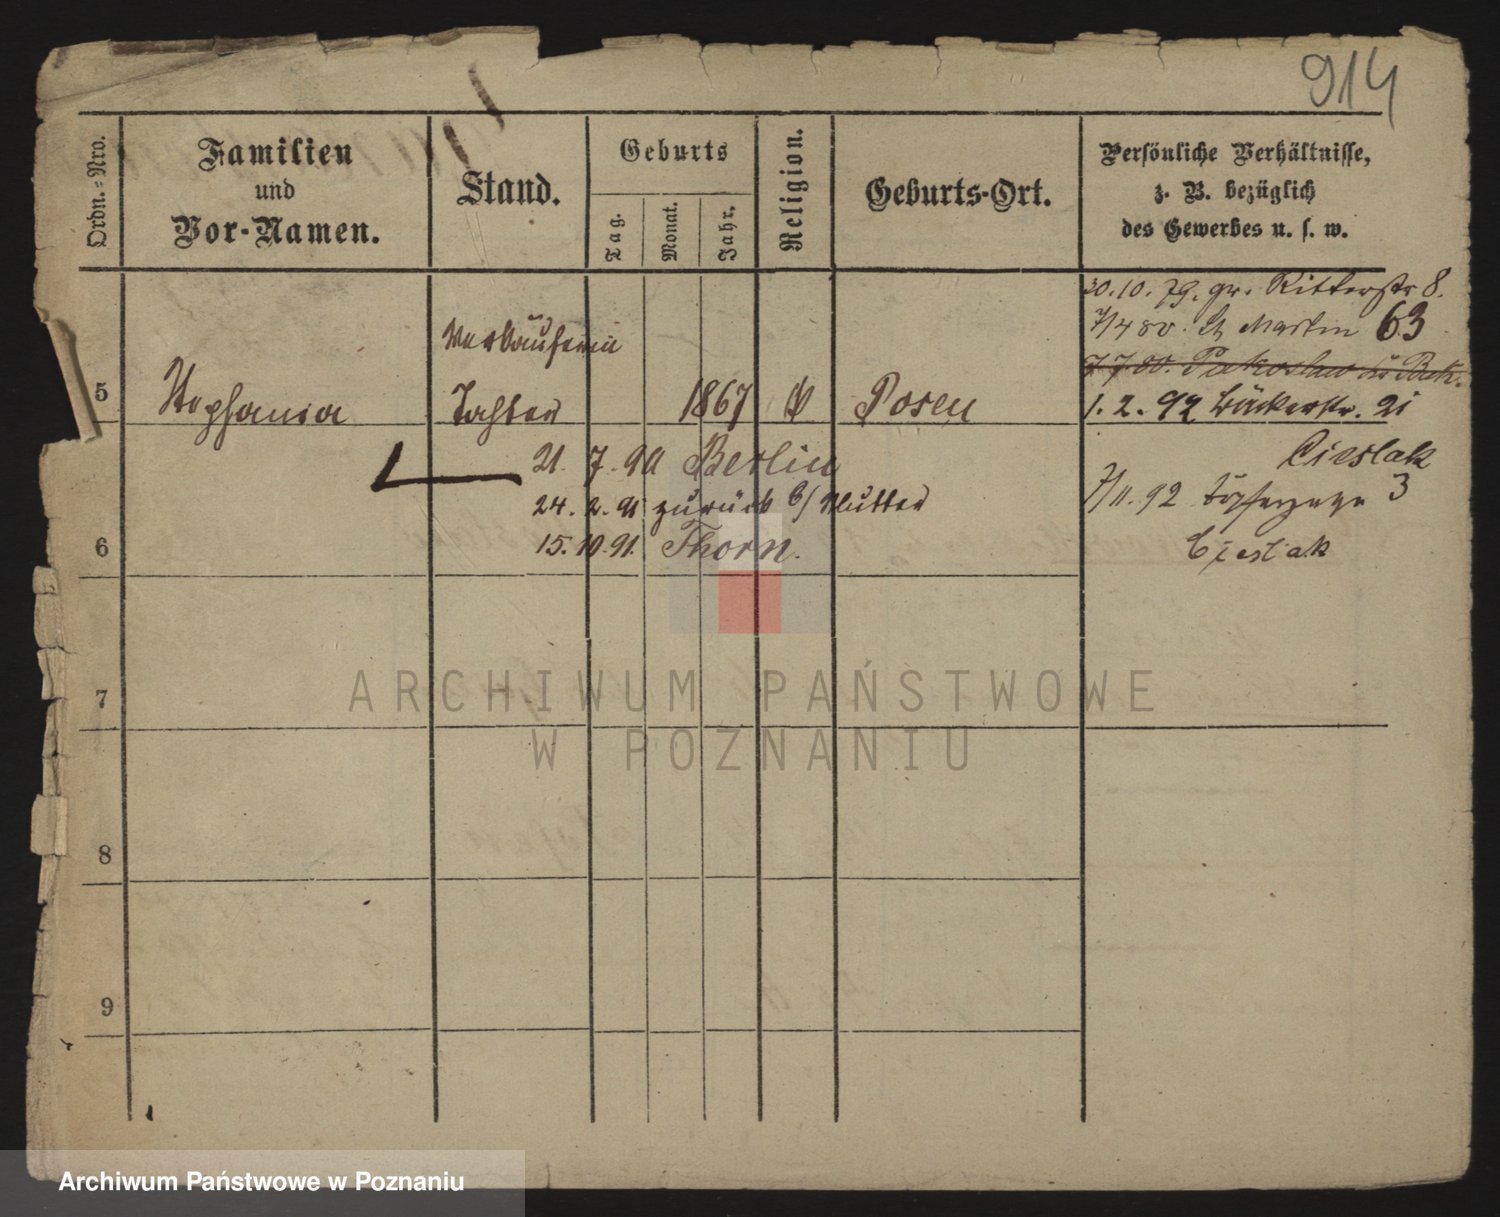 914
Ordn.-Nro.
Familien
und
Vor-Namen.
Stand.
Geburts
Tag.
Monat.
Jahr.
Religion.
Geburts-Ort.
Persönliche Verhältnisse,
z. B. bezüglich
des Gewerbes u. s. w.
30.10.79. gr. Ritterstr 8.
7/4 80. St Martin 63
Verkäuferin
7.7.80.
5 Stephania Tochter 1867 Posen
1.2.92 Bäckerstr. 21
Cieslak
21. 7. 90 Berlin
24. 2. 91 zurück b/ Mutter
7/11.92 3
6
15.10.91. Thorn.
Cieslak
7
8
9
ARCHIWUM PAŃSTWOWE
W POZNANIU
Archiwum Państwowe w Poznaniu